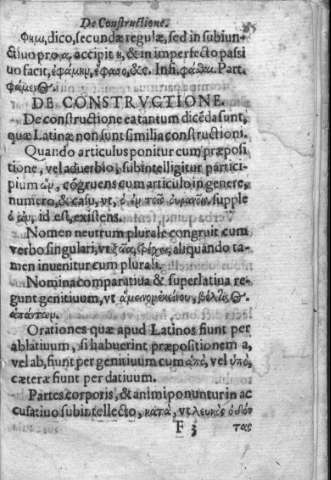 De Constructione.
dico, secundæ regulæ, sed in subiun-
ctiuo pro α, accipit η, & in imperfecto passi
uo facit, ἐφάμην, ἔφασο, &c. Infi. φάσθαι. Part.
φάμενος.
DE CONSTRVCTIONE.
De constructione ea tantum dicẽda sunt,
quæ Latinæ non sunt similia constructioni.
Quando articulus ponitur cum præposi
tione, vel aduerbio, subintelligitur partici-
pium ὢν, cõgruens cum articulo in genere,
numero, & casu, vt, ὁ ἐν τοῖς οὐρανοῖς supple
ὁ ὢν, id est, existens.
Nomen neutrum plurale congruit cum
verbo singulari, vt ζῶα τρέχει, aliquando ta-
men inuenitur cum plurali.
Nomina comparatiua & superlatiua re-
gunt genitiuum, vt
ἁπάντων.
Orationes quæ apud Latinos fiunt per
ablatiuum, si habuerint præpositionem a,
vel ab, fiunt per genitiuum cum ἀπὸ, vel ὑπὸ,
cætera fiunt per datiuum.
Partes corporis, & animi ponuntur in ac
cusatiuo subintellecto, κατὰ, vt λευκὸς ὀδόν
F 3 τας